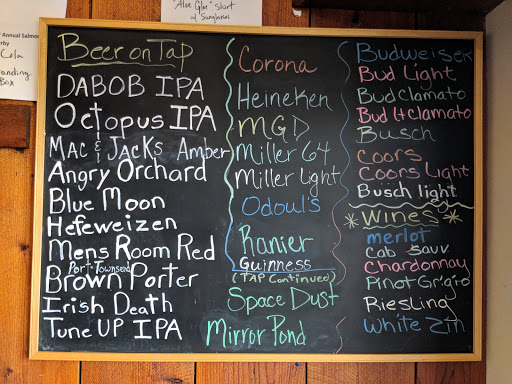 Annual Salmon
rby
Cola
randing
Box
"Aloe Gloe" shirt
w/ Sunglasses
Beer on Tap
DABOB IPA
Octopus IPA
Mac & Jacks Amber
Angry Orchard
Blue Moon
Hefeweizen
Mens Room Red
Port Townsend
Brown Porter
Irish Death
Tune UP IPA
Corona
Heineken
MGD
Miller 64
Miller Light
Odoul's
Ranier
Guinness
(TAP Continued)
Space Dust
Mirror Pond
Budweiser
Bud Light
Bud Clamato
Bud Lt Clamato
Busch
Coors
Coors Light
Busch light
*Wines*
merlot
Cab Sauv
Chardonnay
Pinot Grigio
Riesling
White Zin